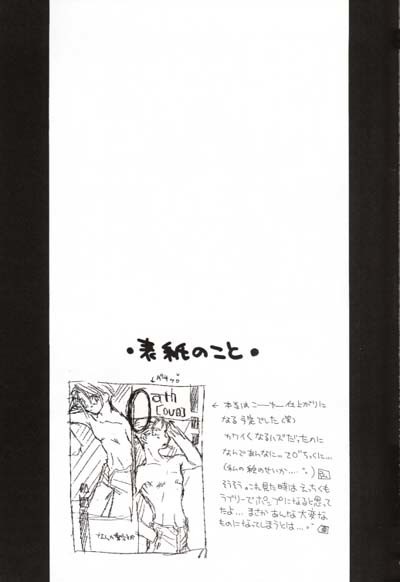 ・表紙のこと・
0ath
[OVA]
← 本当はこーゆー仕上がりに
なる予定でした(笑)
カワイくなるハズだったのに
なんであんなに
(私の絵のせいか…。)
そうそう。これ見た時は えっらくも
ラブリーでポップになると思って
たよ… まさかあんな大変な
ものになってしまうとは…。